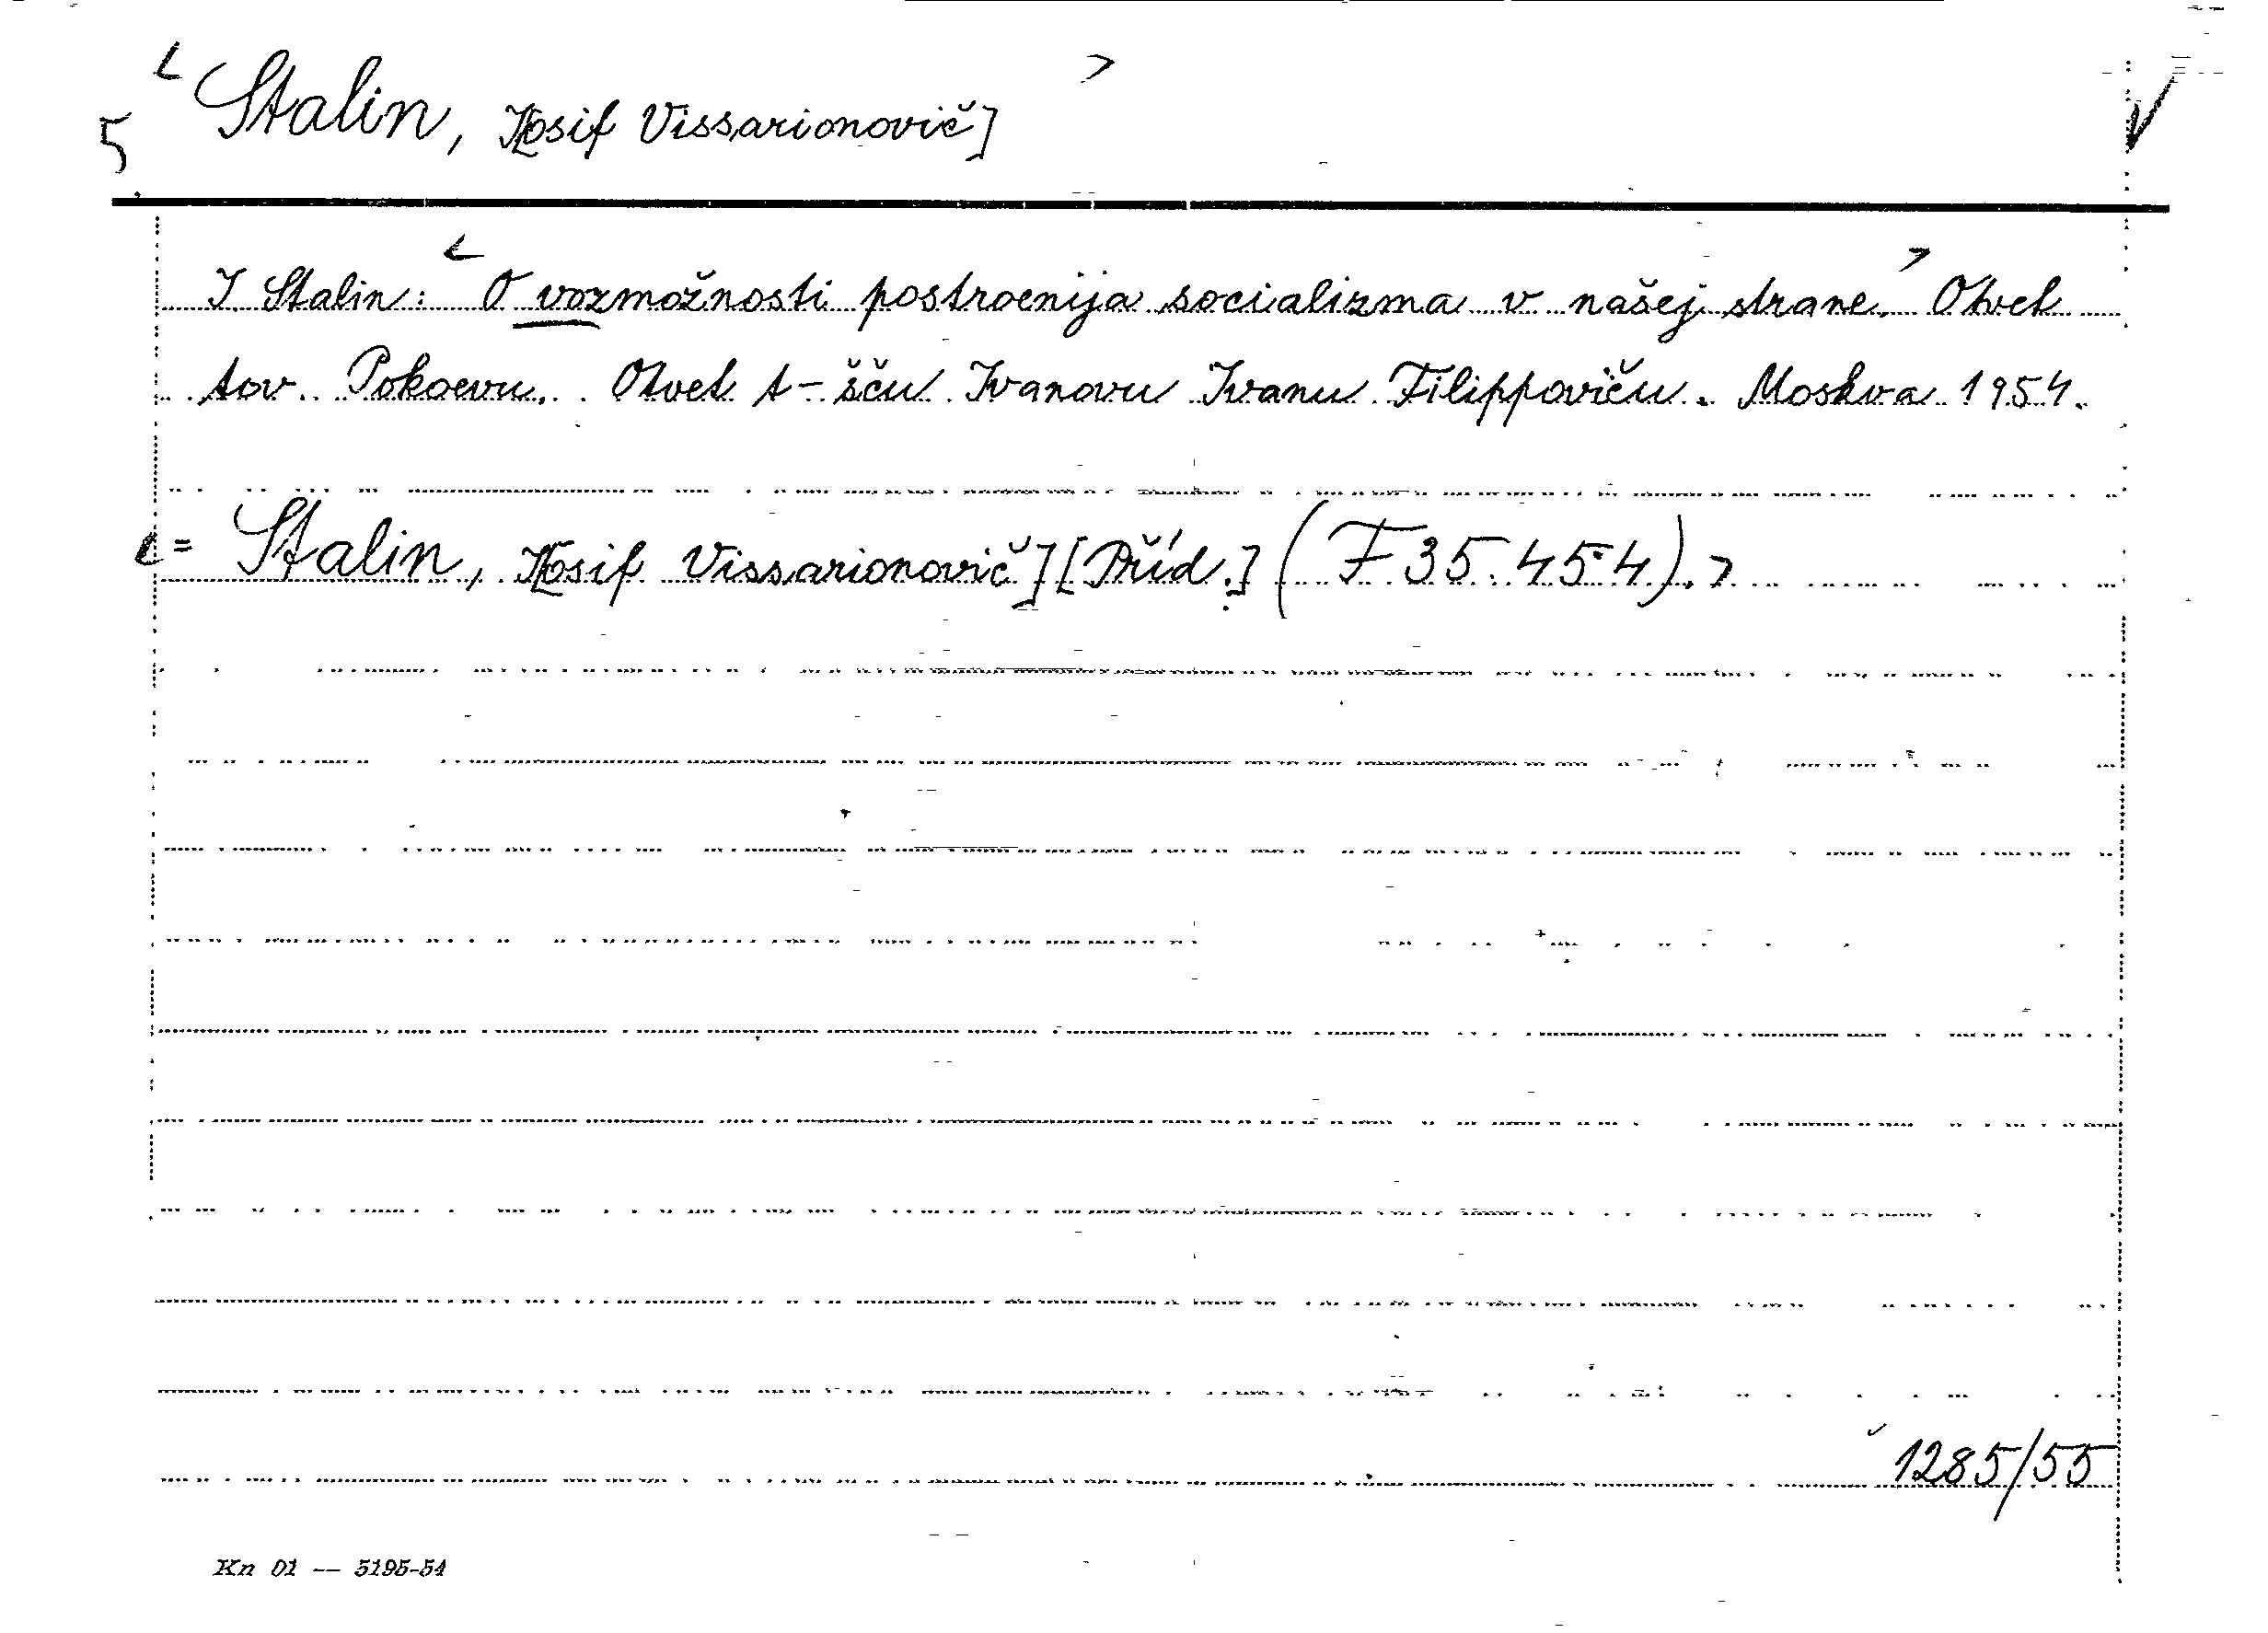 < Stalin, I[osif Vissarionovič] > V
5
I. Stalin: < O vozmožnosti postroenija socializma v našej strane. > Otvet
tov. Pokoevu. Otvet t-šču Ivanovu Ivanu Filippoviču. Moskva 1954.
<= Stalin, I[osif Vissarionovič] [Příd.] (F 35.454).>
1285/55
Kn 01 -- 5195-54